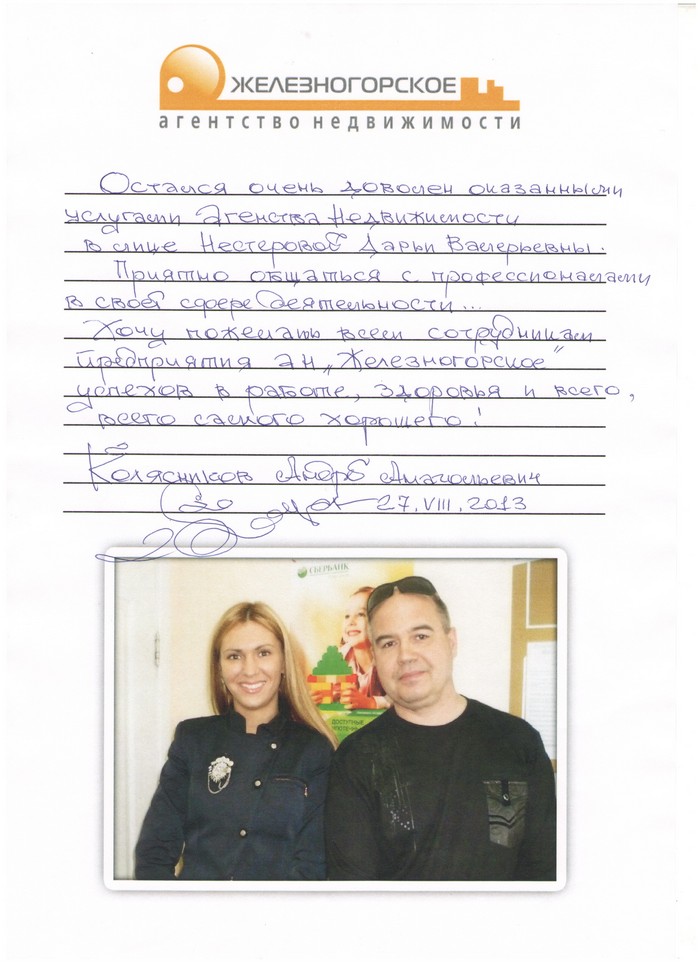 ЖЕЛЕЗНОГОРСКОЕ
агентство недвижимости
Остался очень доволен оказанными
услугами Агенства Недвижимости
в лице Нестеровой Дарьи Валерьевны.
Приятно общаться с профессионалами
в своей сфере деятельности...
Хочу пожелать всем сотрудникам
предприятия АН „Железногорское"
успехов в работе, здоровья и всего,
всего самого хорошего!
Колясников Андрей Анатольевич
27.VIII.2013
СБЕРБАНК
ДОСТУПНЫЕ